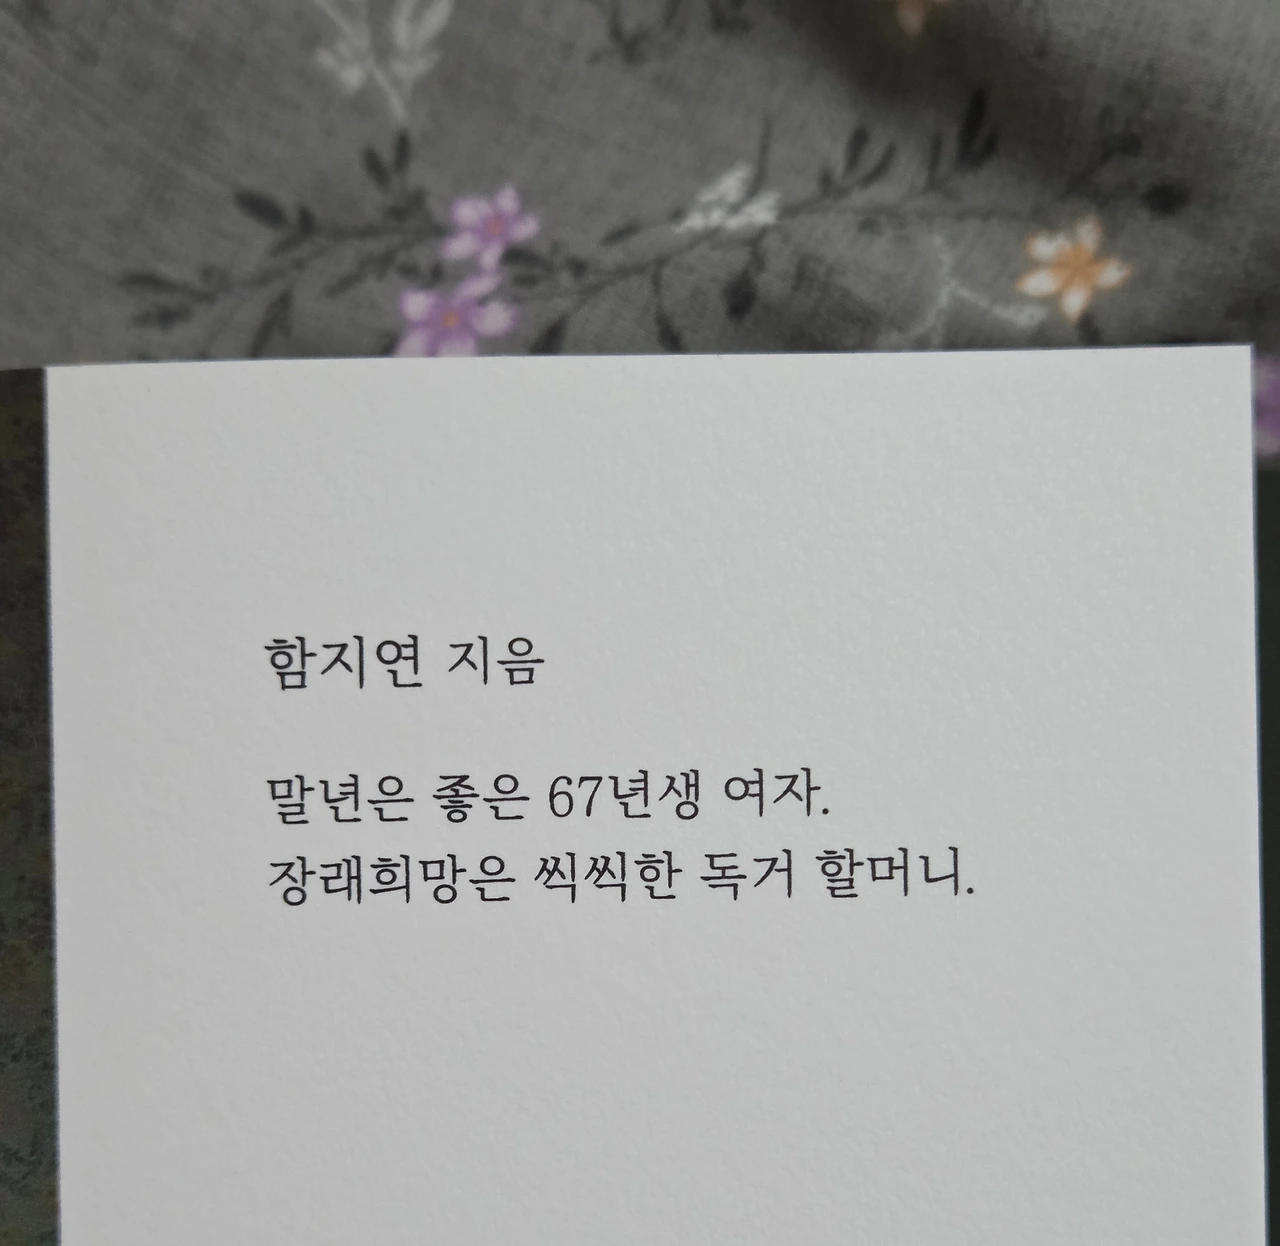 함지연 지음
말년은 좋은 67년생 여자.
장래희망은 씩씩한 독거 할머니.